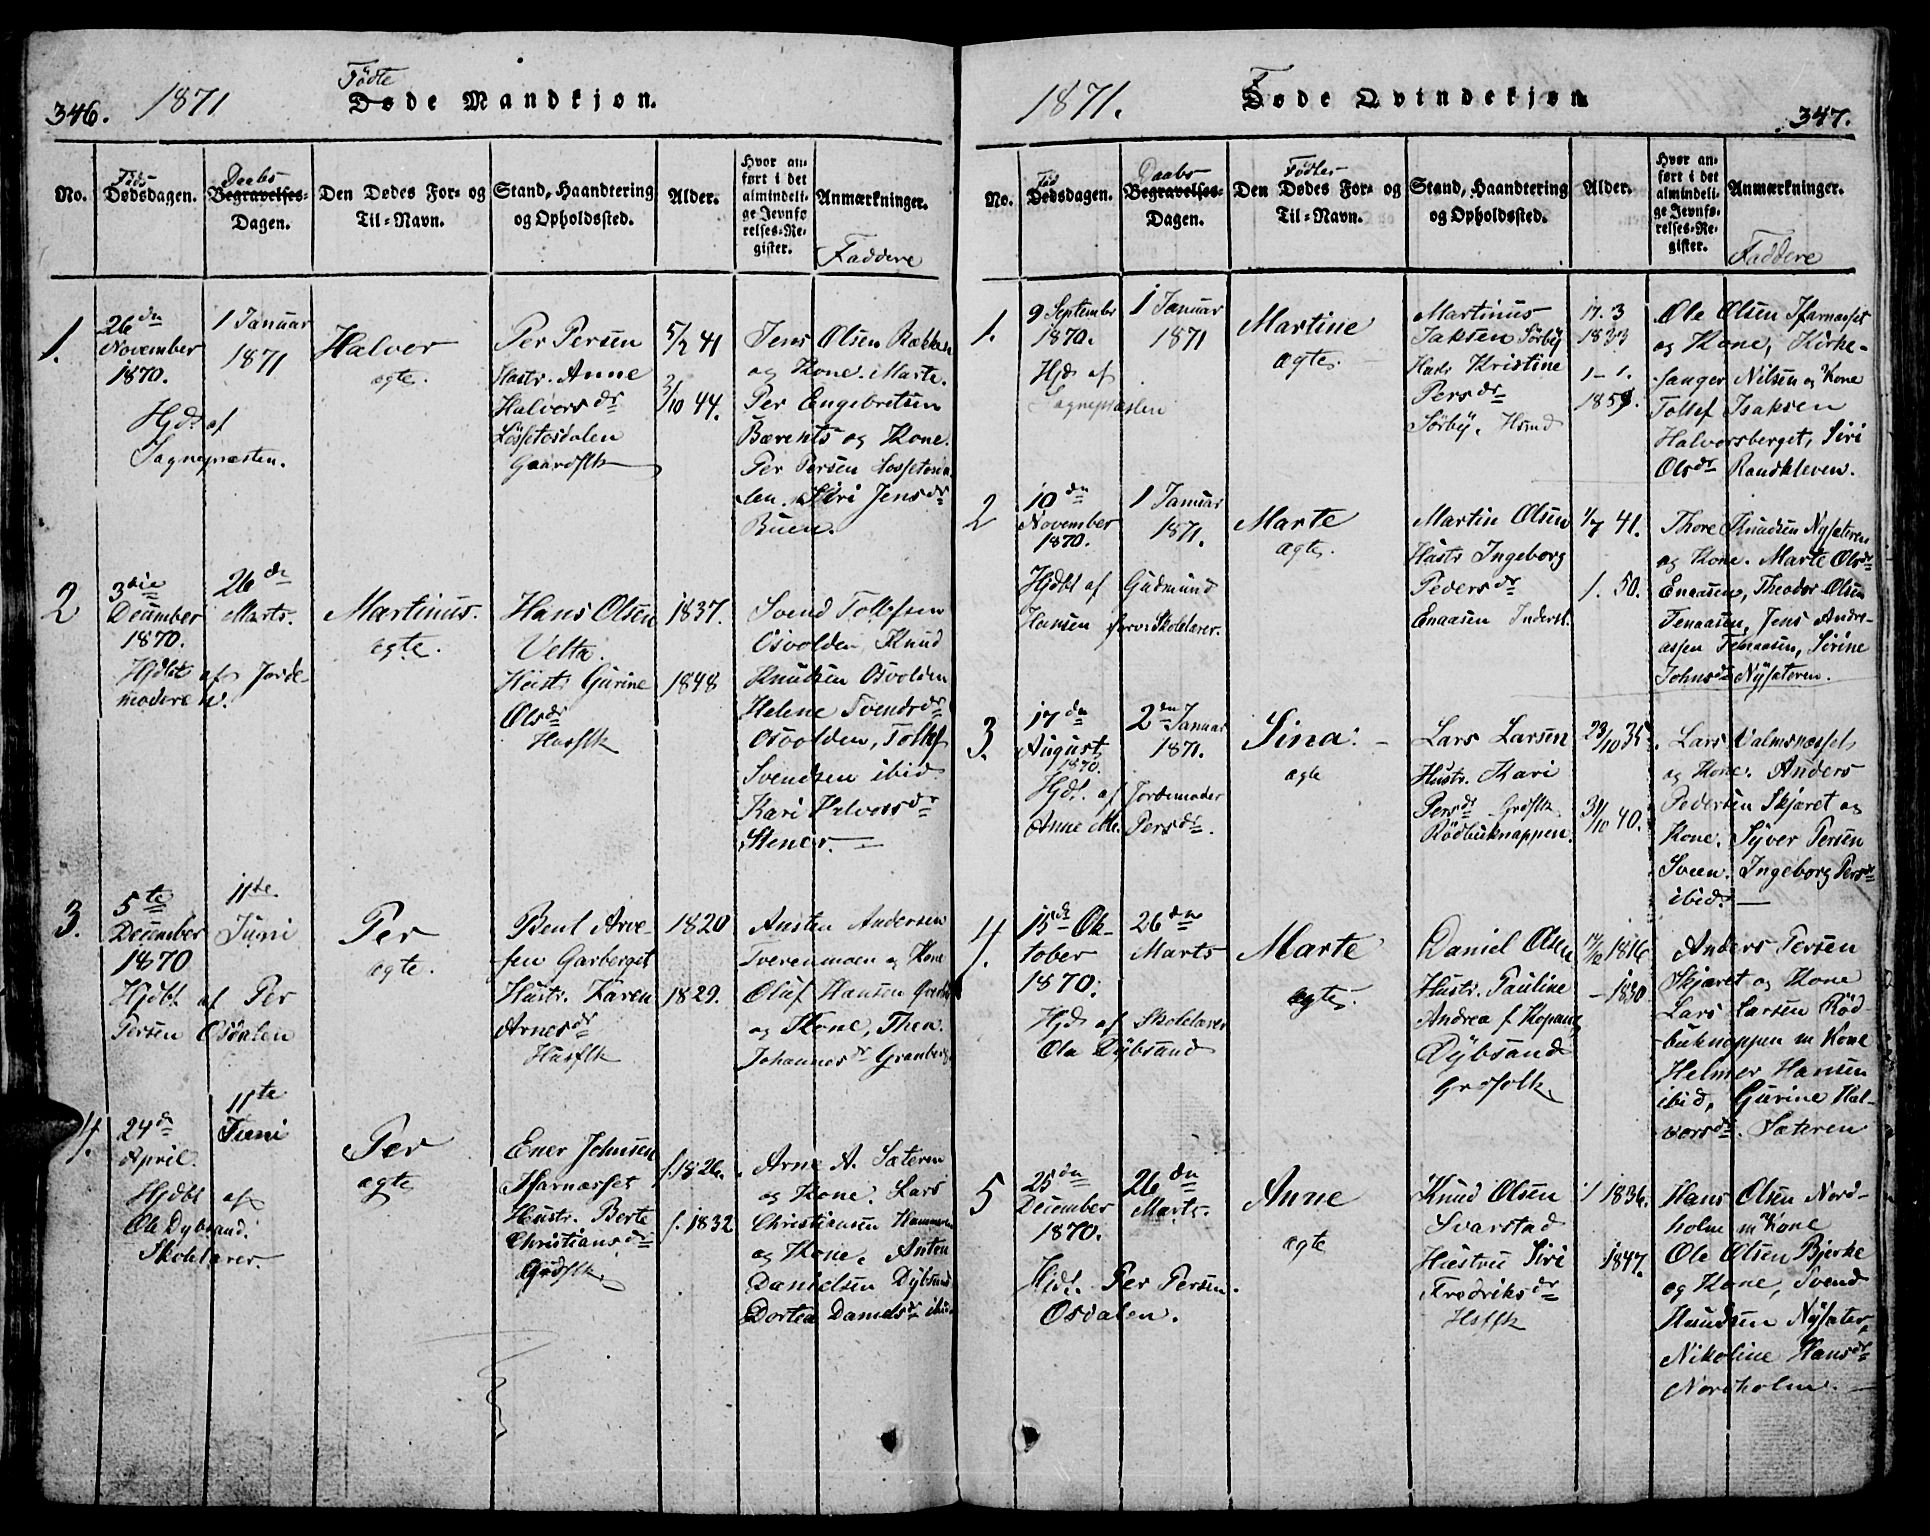 346. 1871 Fødte
Døde Mandkjøn.
No.
Føds
Dødsdagen.
Daabs
Begravelses-
Dagen.
Den Dødes For- og
Til-Navn.
Stand, Haandtering
og Opholdssted.
Alder.
Hvor an-
ført i det
almindeli-
ge Jevnfø
relses-Re-
gister.
Anmærkninger.
Faddere
1.
26 de
November
1870.
Hjds af
Sognepræsten.
1 Januar
1871
Halvor
ægte.
Per Persen
Hustr. Anne
Halvorsdr
Løssetosdalen
Gaardflk
5/2 41
3/10 44.
Jens Olsen Rækken
og Kone. Marte.
Per Engebretsen
Bærents og Kone.
Per Persen Lossetosda
len. Siri Jensdr
Buen.
2
3die
December
1870.
Hjdbt af Jorde
moderen.
26de
Marts.
Martinus.
ægte.
Hans Olsen
Velta.
Gurine
Olsdr
Husflk
1837.
1848
Svend Tollefsen
Osvolden, Knud
Knutsen Osvolden
Helene Svendsdr
Osvolden, Tollef
Svendsen ibid.
Kari Halvorsdr
Stener.
3.
5te
December
1870
Hjdbt af Per
Persen Osdalen
11te
Juni
Per
ægte.
Bent Arne-
sen Garberget
Hustr. Karen
Arnesdr
Husflk
1820
1829.
Austen Andersen
Tverenmoen og Kone
Oluf Hansen
og Kone, Then.
Johannesdr Granberg
4.
24de
April.
Hjdbt af
Ole Dybsand.
Skolelærer.
11te
Juni
Per
ægte
Ener Johnsen
Hfarnæsset
Hustr. Berte
Christiansdr
Grdflk.
f. 1826.
f. 1832
Arne A. Sæteren
og Kone. Lars
Christiansen Hammeren
og Kone. Anton
Danielsen Dybsand
Dortea Danielsdr ibid
1871. Fødte
Døde Qvindekjøn
347.
No.
Fød
Dødsdagen.
Daabs
Begravelses-
Dagen.
Fødtes
Den Dødes For- og
Til-Navn.
Stand, Haandtering
og Opholdssted.
Alder.
Hvor an-
ført i det
almindeli-
ge Jevnfø-
relses-Re-
gister.
Anmærkninger.
Faddere
1.
9 September
1870.
Hjds af
Sognepræsten
1 Januar
1871
Martine
ægte.
Martinus
Isaksen Sørby
Hustr Kristine
Persdr
Sørby.
17. 3
1833
1-1.
Ole Olsen Hfarnæsset
og Kone, Kirke-
sanger Nilsen og Kone
Tollef Isaksen
Halvorsberget, Siri
Olsdr Randkleven.
2
10de
November
1870.
Hjdbt af Gudmund
Hansen forv: Skolelærer.
1 Januar
1871.
Marte
ægte.
Martin Olsen
Hustr Ingeborg
Pedersdr
Enaasen Inderst.
1/7 41.
1. 50.
Thore Knudsen Nysæteren
og Kone. Marte Olsdr
Enaasen, Theodor Olsen
Fenaasen, Jens Andre-
assen Fenaasen, Sirine
Johnsdr Nysæteren.
3.
17de
August
1870.
Hjdt. af Jordemoder
Anne M. Persdr.
2den Januar
1871.
Sina.
ægte
Lars Larsen
Hustr. Kari
Persdr Grdflk
Rødbuknappen.
23/10 35
31/10 40.
Lars Valmsnesset
og Kone. Anders
Pedersen Skjæret og
Kone. Syver Persen
Sveen. Ingeborg Persdr
ibid.
4.
15de Ok-
tober
1870.
Hjds af Skolelærer
Ola Dybsand
26de
Marts
Marte
ægte.
Daniel Olsen
Hustr. Pauline
Andrea f. Kopang
Dybsand
Grdfolk.
1816
Anders Persen
Skjæret og Kone
Lars Larsen Rød-
buknappen m Kone
Helmer Hansen
ibid, Gurine Hal-
vorsdr. Sæteren
5
25de
December
1870.
Hjdt. Per Persen.
Osdalen.
26de
Marts.
Anne
ægte
Knud Olsen
Svarstad
Hustru Siri
Fredriksdr
Hsflk
1836.
1847.
Hans Olsen Nord-
holm m Kone
Ole Olsen Bjerke
og Kone, Svend
Knudsen Nysæter,
Nikoline Hansdr
Nordholm.